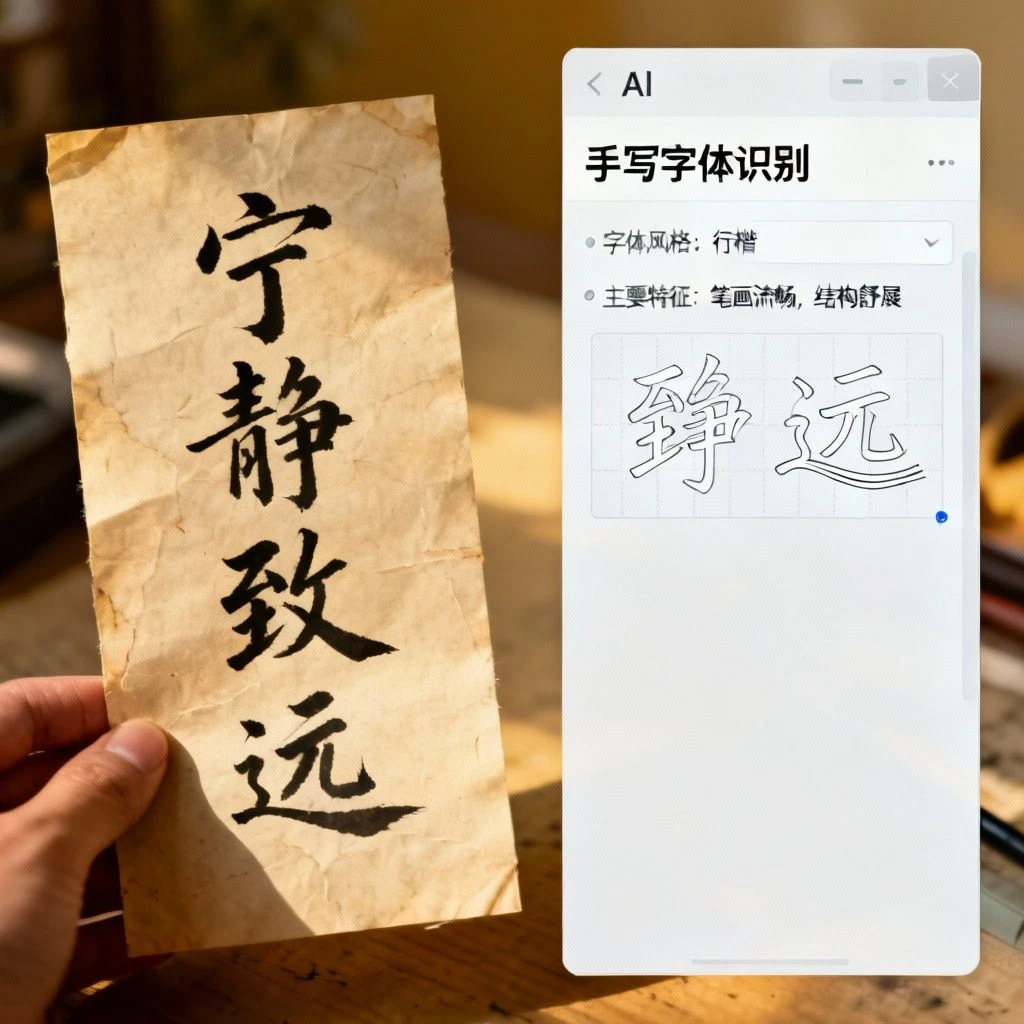 宁静致远
AI
手写字体识别
字体风格：行楷
主要特征：笔画流畅，结构舒展
远